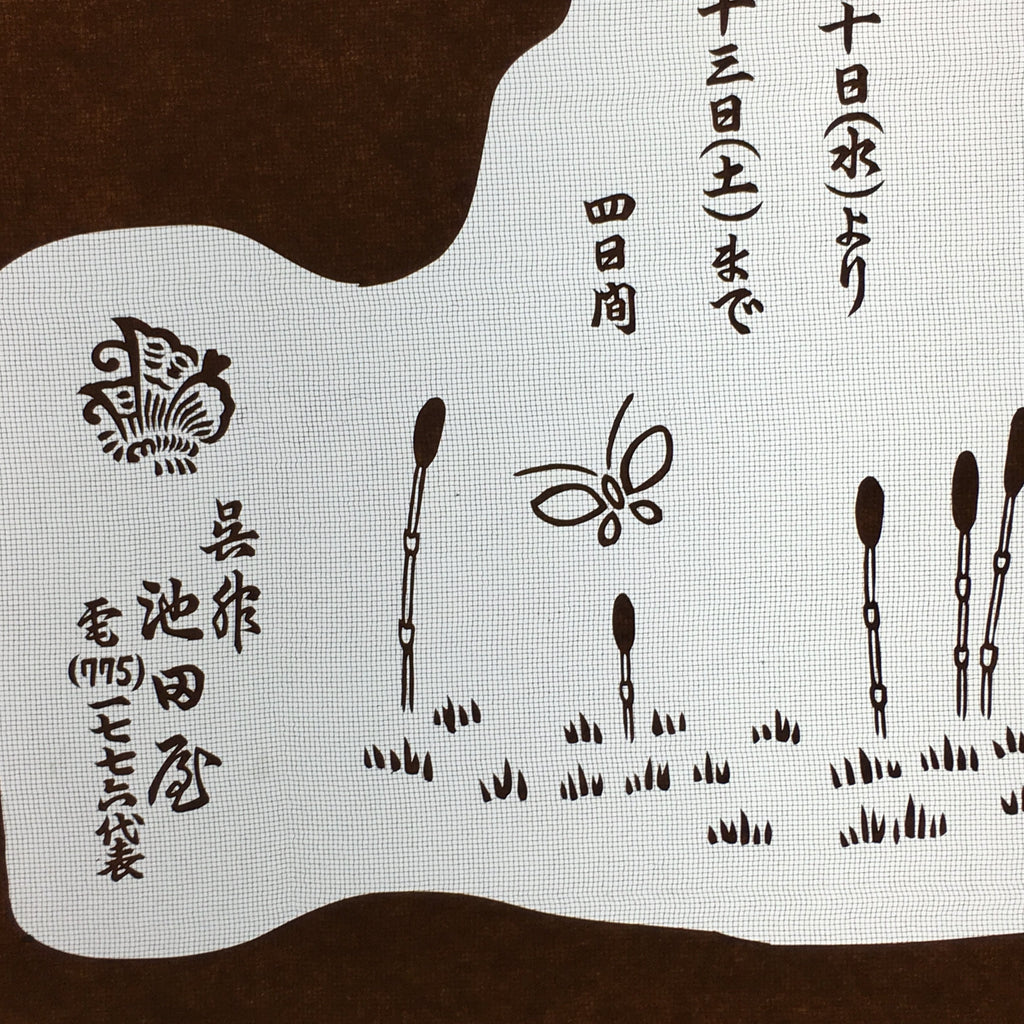 十日(水)より
十三日(土)まで
四日間
呉服
池田屋
電(775)一七七六代表